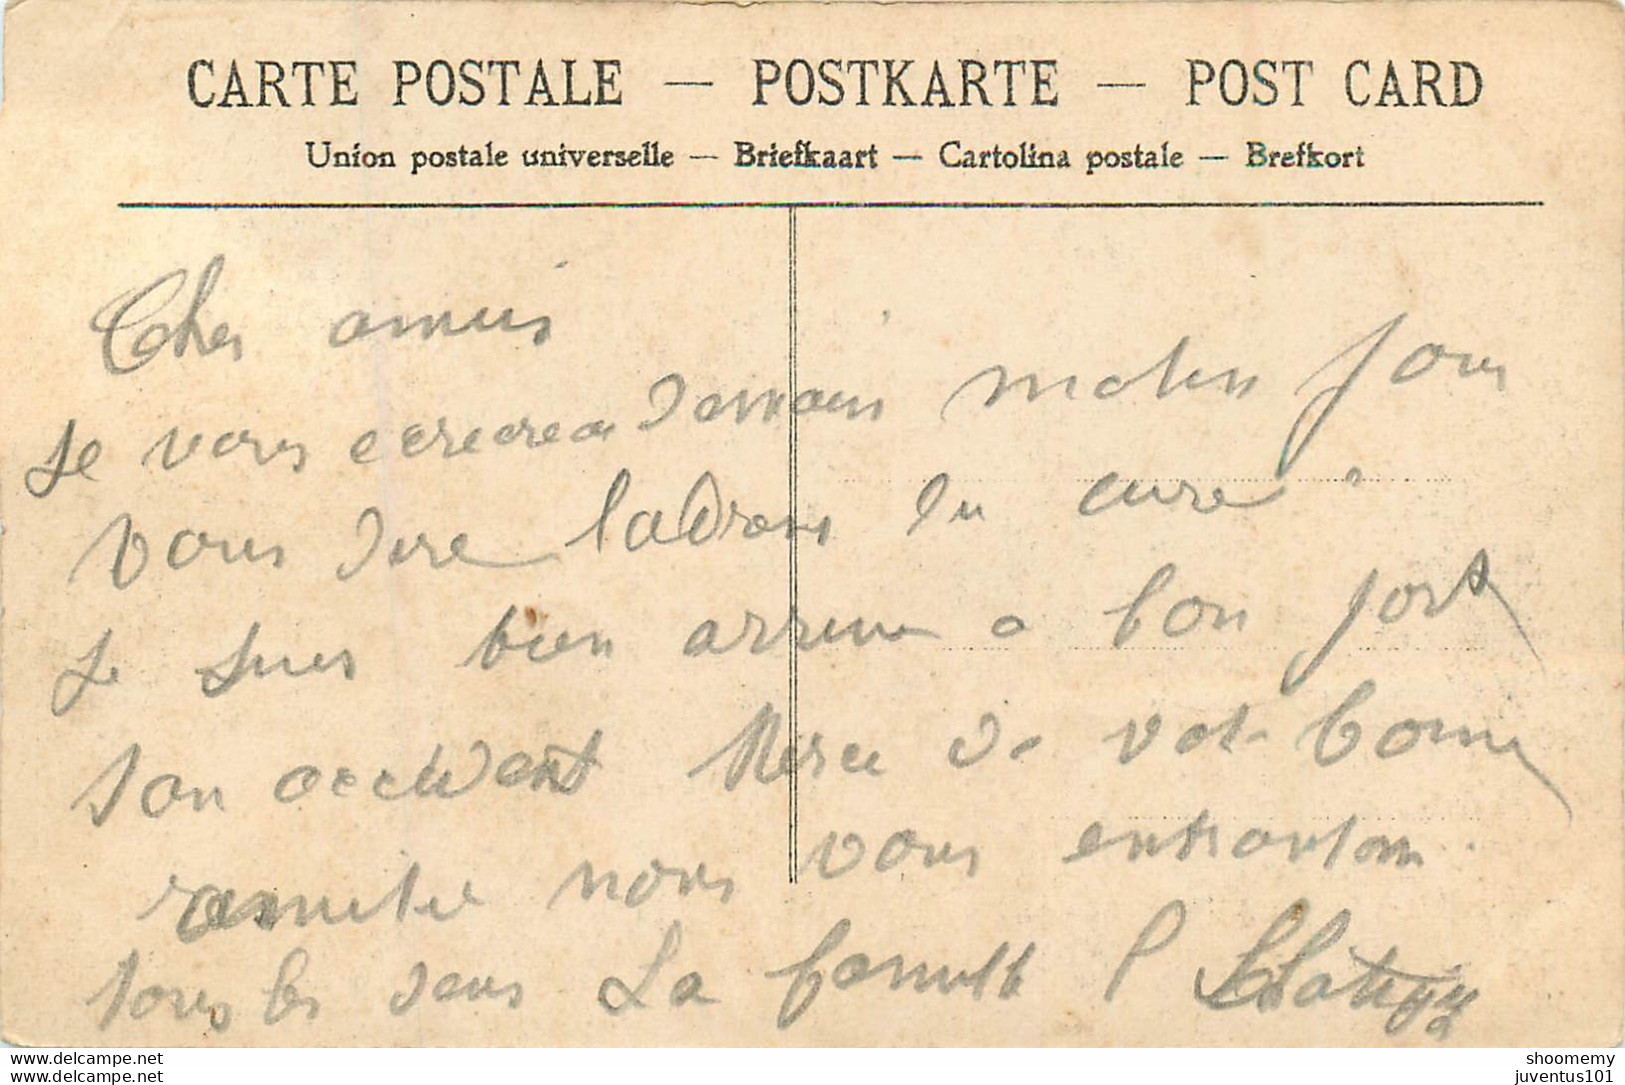 CARTE POSTALE — POSTKARTE — POST CARD
Union postale universelle — Briefkaart — Cartolina postale — Brefkort
Cher amis
Je vous ecrerea demain matin pour
vous dire ladrans du curé
Je suis bien arrive a bon port
san accident Merci de vot bonne
amitie nous vous
tous les deus La famille P
delcampe.net
delcampe.net
shoomemy
juventus101